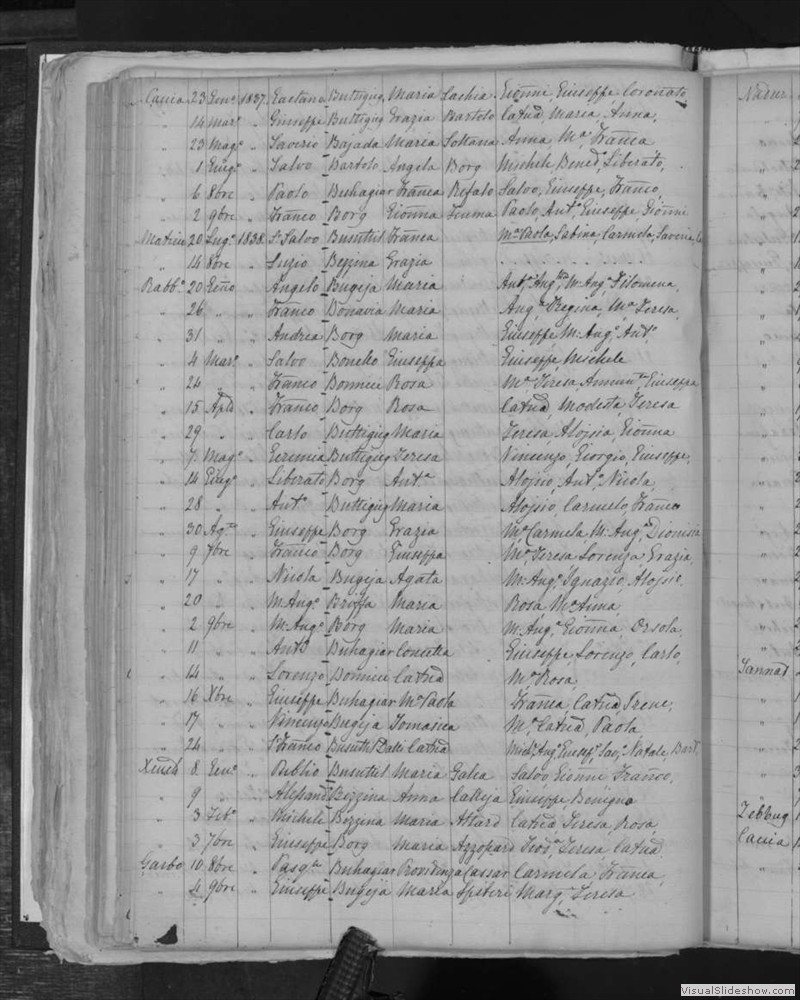 Caccia 23 Genº 1837 Gaetano Buttigieg Maria Sachia Gionni, Giuseppe, Coronato
" 14 marº " Giuseppe Buttigieg Grazia Bartolo Catnd, Maria, Anna,
" 23 Magº " Saverio Bajada Maria Soltana Anna Mª, Franca
" 1 Giugº " Salvo Bartolo Angela Borg Michele, Bened, Liberato,
" 6 8bre " Paolo Buhagiar Franca Refalo Salvo, Giuseppe, Franco,
" 2 9bre " Franco Borg Gionna Paolo, Antº, Giuseppe, Gionni
20 Lugº 1838 Salvo Busuttil Franca Mª Paola, Sabina, Carmela, Saveria,
" 14 8bre " Luzio Bezzina Grazia . . . . . .
Rabbº 20 " Angelo Bugeja Maria Antº, Angª, M. Angº, Filomena,
" 26 " " Franco Bonavia Maria Angª, Regina, Mª Teresa,
" 31 " " Andrea Borg Maria Giuseppe, M. Angº, Antº,
" 4 Marº " Salvo Bonello Giuseppa Giuseppe, Michele
" 24 " " Franco Bonnici Rosa Mª Teresa, Giuseppa
" 15 Aple " Franco Borg Rosa Catnd, Modesta, Teresa
" 29 " " Carlo Buttigieg Maria Teresa, Aloisia, Gionna
" 7 Magº " Geremia Buttigieg Teresa Vincenzo, Giorgio, Giuseppe,
" 14 Giugº " Liberato Borg Antª Aloisio, Antº, Nicola,
" 28 " " Antº Buttigieg Maria Aloisio, Carmelo, Franco
" 30 Agº " Giuseppe Borg Grazia Mª Carmela, M. Angª, Dionisia
" 9 7bre " Franco Borg Giuseppa Mª Teresa, Lorenza, Grazia,
" 17 " " Nicola Bugeja Agata M. Angº, Ignazio, Aloisio
" 20 " " M. Angº Briffa Maria Rosa, Mª Anna,
" 2 9bre " M. Angº Borg Maria M. Angº, Gionna, Orsola,
" 11 " " Antº Buhagiar Concetta Giuseppe, Lorenzo, Carlo,
" 14 " " Lorenzo Bonnici Catnd Mª Rosa,
" 16 Xbre " Giuseppe Buhagiar Mª Paola Franca, Catnd, Irene,
" 17 " " Vincenzo Bugeja Tomasica Mª Catnd, Paola
" 24 " " Franco Busuttil Dalli Catnd Natale, Bart.
Xeuch 8 Genº " Publio Busuttil Maria Galea Salvo, Gionni, Franco,
" 9 " " Bezzina Anna Calleja Giuseppe, Benigno
" 3 Febº " Michele Bezzina Maria Attard Catnd, Teresa, Rosa,
" 3 7bre " Giuseppe Borg Maria Azzopardi Teresa, Catnd
Garbo 10 8bre " Pasqle Buhagiar Providenza Cassar Carmela, Franca,
" 4 9bre " Giuseppe Bugeja Maria Spiteri Marg, Teresa
Nadur
Sannat
Zebbug
Caccia
VisualSlideshow.com